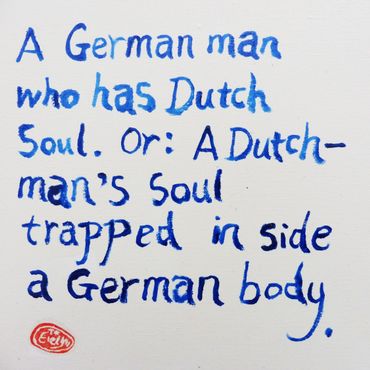 A German man
who has Dutch
Soul. Or: A Dutch-
man's Soul
trapped in side
a German body.